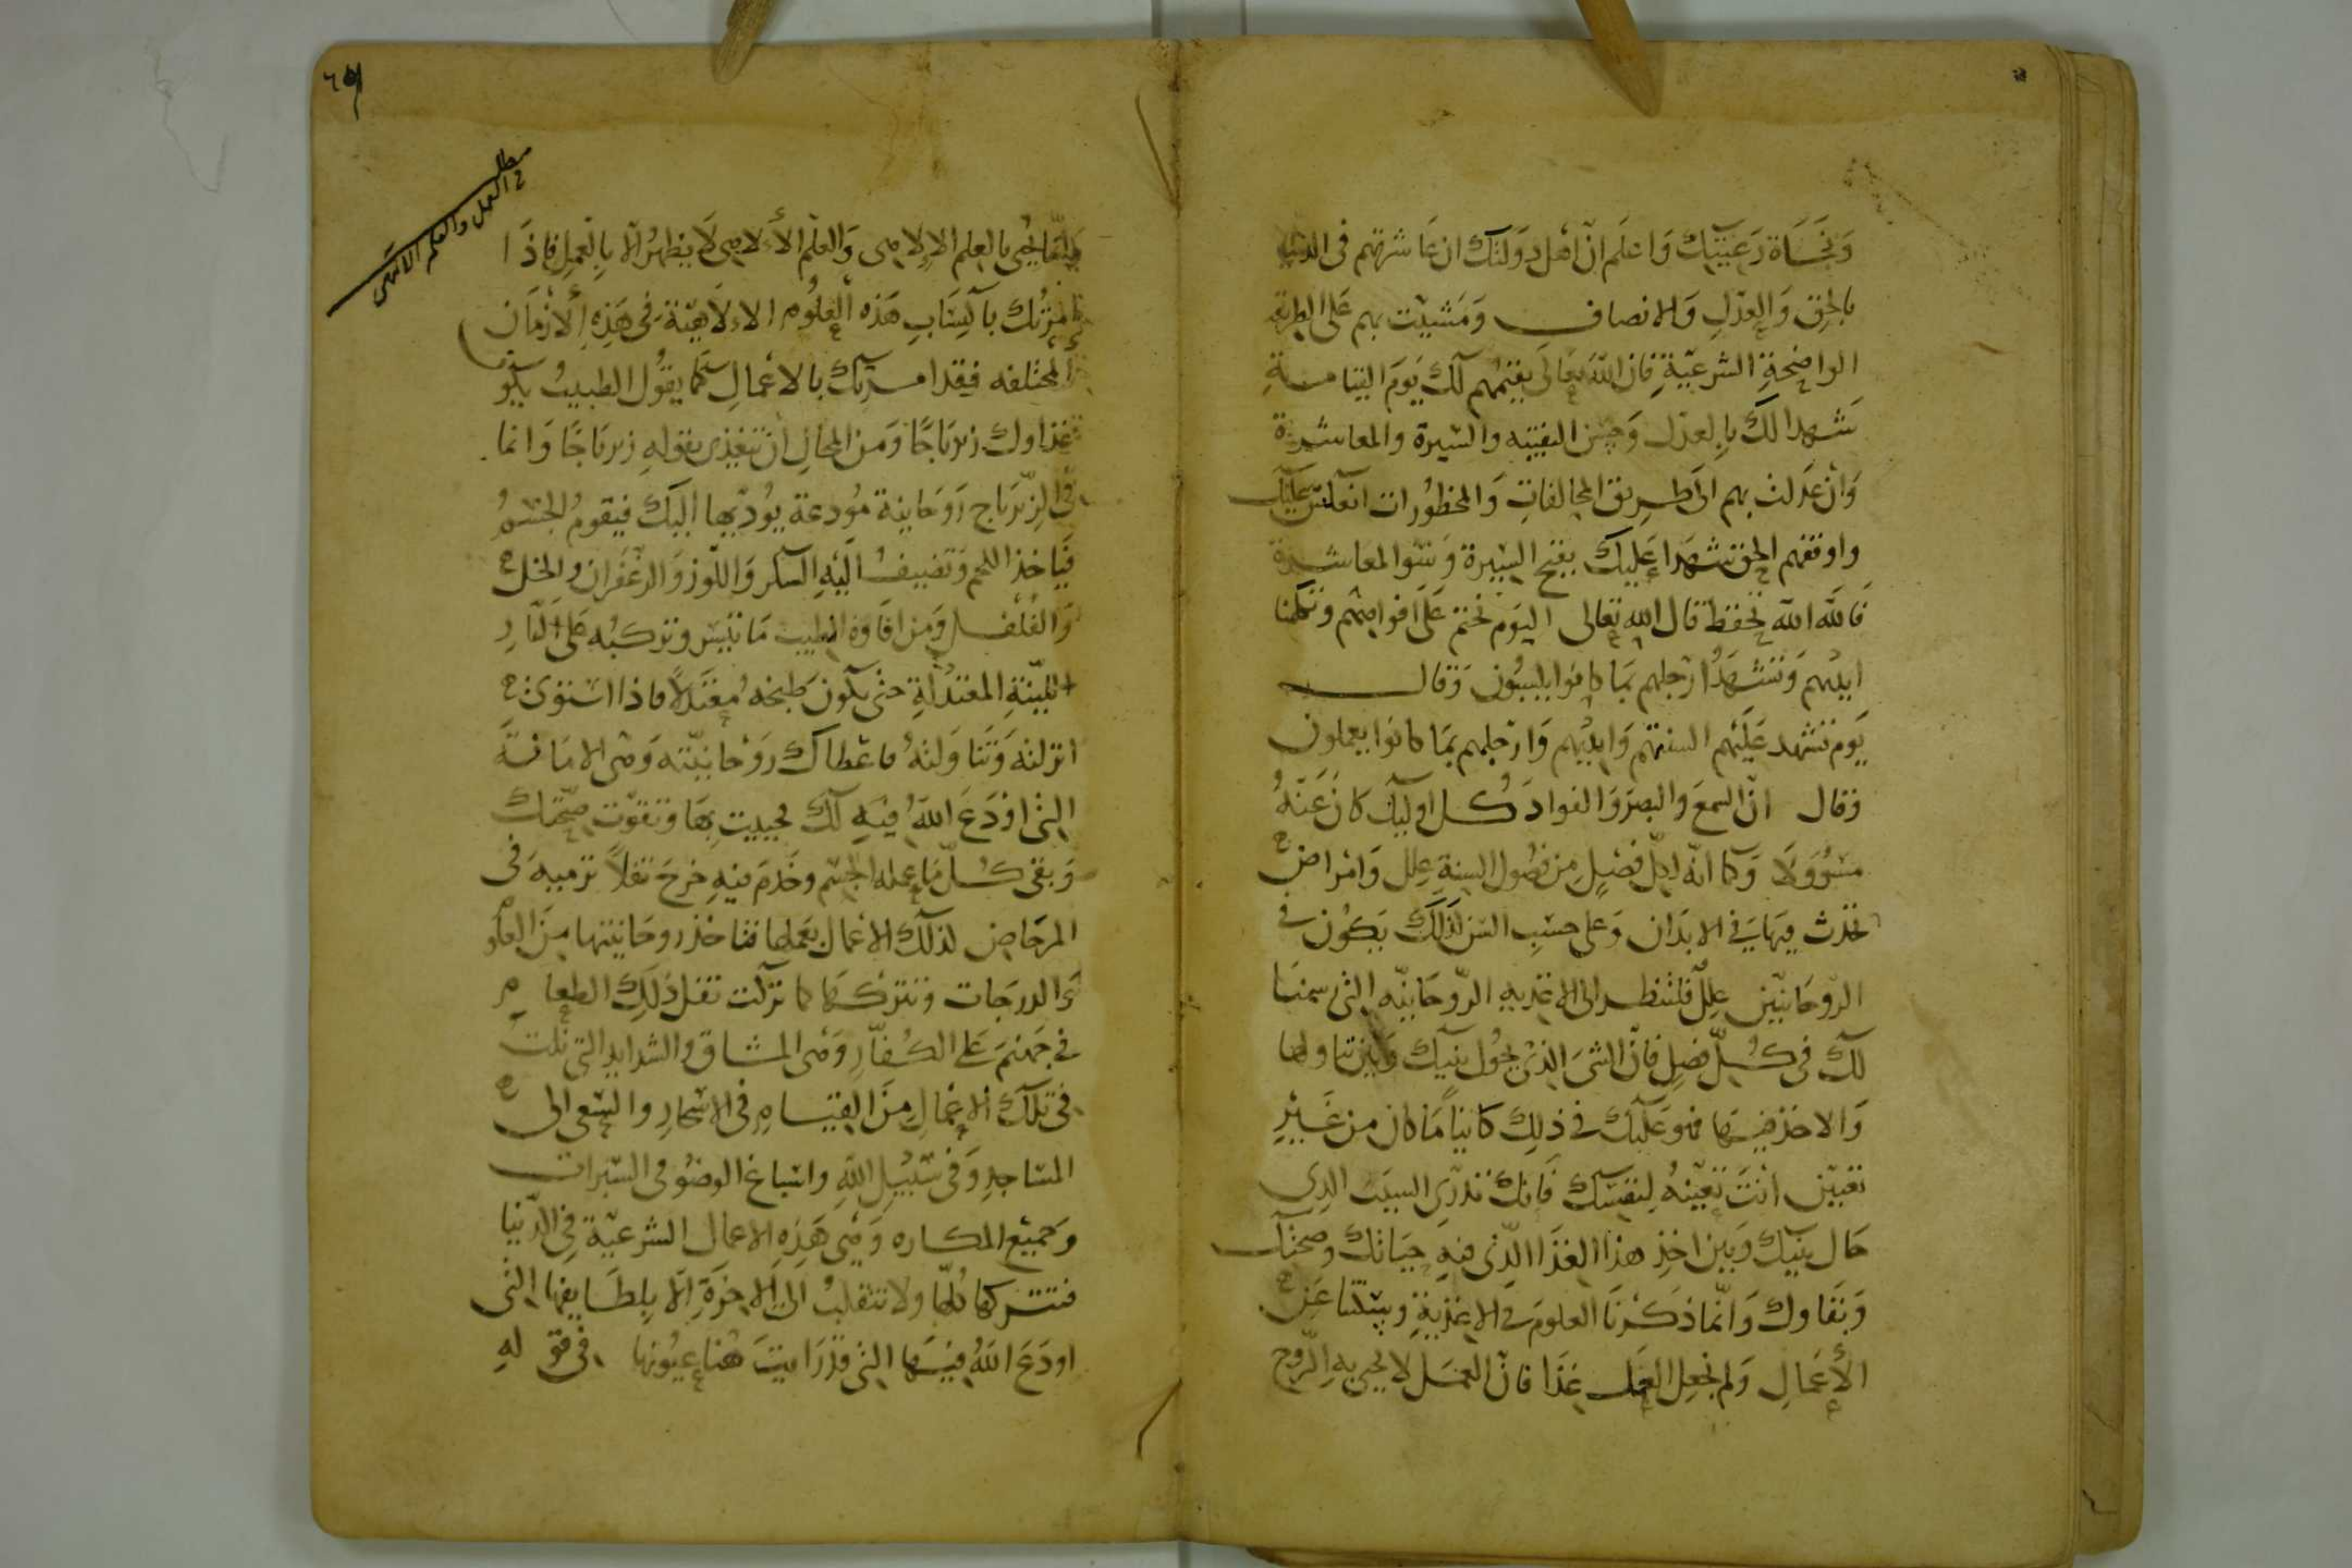 ونجاة رعيتك واعلم ان اهل دولتك ان عاشرتهم في الدنيا
بالحق والعدل والانصاف ومشيت بهم على الطريقة
الواضحة الشرعية فان الله تعالى يقيمهم لك يوم القيامة
شهدا لك بالعدل وحسن والسيرة والمعاشرة
وان عدلت بهم الى طريق المخالفات والمحظورات عليك
واوقفهم الحق شهدا عليك بقبح السيرة وسو المعاشرة
فالله الله تحفظ قال الله تعالى اليوم نختم على افواههم وتكلمنا
ايديهم وتشهد ارجلهم بما كانوا يكسبون وقال
يوم تشهد عليهم السنتهم وايديهم وارجلهم بما كانوا يعملون
وقال ان السمع والبصر والفواد كل اوليك كان عنه
مسوولا وكما انه لكل فصل من فصول السنة علل وامراض
تحدث فيها في الابدان وعلى حسب السن لذلك يكون في
الروحانيين علل فلتنظر الى الاغذيه الروحانيه التي رسمنا
لك في كل فصل فان الشي الذي يحول بينك وبين تناولها
والاخذ منها فهو علتك في ذلك كاينا ما كان من غير
تعيين انت تعينه لنفسك فانك تدري السبب الذي
حال بينك وبين اخذ هذا الغذا الذي فيه حياتك وصحتك
وبقاوك وانما ذكرنا العلوم في الاغذية وسكتنا عن
الأعمال ولم نجعل العمل غذا فان العمل لا يحيى به الروح
مطلب
في العمل والعلم الالاهي
وانما يحيى بالعلم الالاهي والعلم الألاهي لا يظهر الا بالعمل فاذا
امرتك باكتساب هذه العلوم الالاهية في هذه الازمان
المختلفه فقد امرتك بالاعمال كما يقول الطبيب يكون
غذاوك زيرباجا ومن المحال ان تتغذى بقوله زيرباجا وانما
في الزيرباج روحانية مودعة يوديها اليك فيقوم الجسم
فياخذ اللحم وتضيف اليه السكر واللوز والزعفران والخل
والفلفل ومن افاوه الطيب ما تيسر وتركبه على النار
اللينة المعتدلة حتى يكون طبخه معتدلا فاذا استوى
انزلته وتناولته فاعطاك روحانيته وهي الامانة
التي اودع الله فيه لك فحييت بها وتقوت صحتك
وبقي كل ما عمله الجسم وخدم فيه خرج ثفلا ترميه في
المرحاض لذلك الاعمال تعملها فتاخذ روحانيتها من العلو
والدرجات وتتركها كما تركت ثفل ذلك الطعام
في جهنم على الكفار وهي المشاق والشدايد التي نلت
في تلك الاعمال من القيام في الاسحار والسعي الى
المساجد وفي سبيل الله واسباغ الوضو في السبرات
وجميع المكاره وهي هذه الاعمال الشرعية في الدنيا
فتتركها كلها ولا تنقلب الى الاخرة الا بلطايفها التي
اودع الله فيها التي قد رايت هنا عيونها في قوله